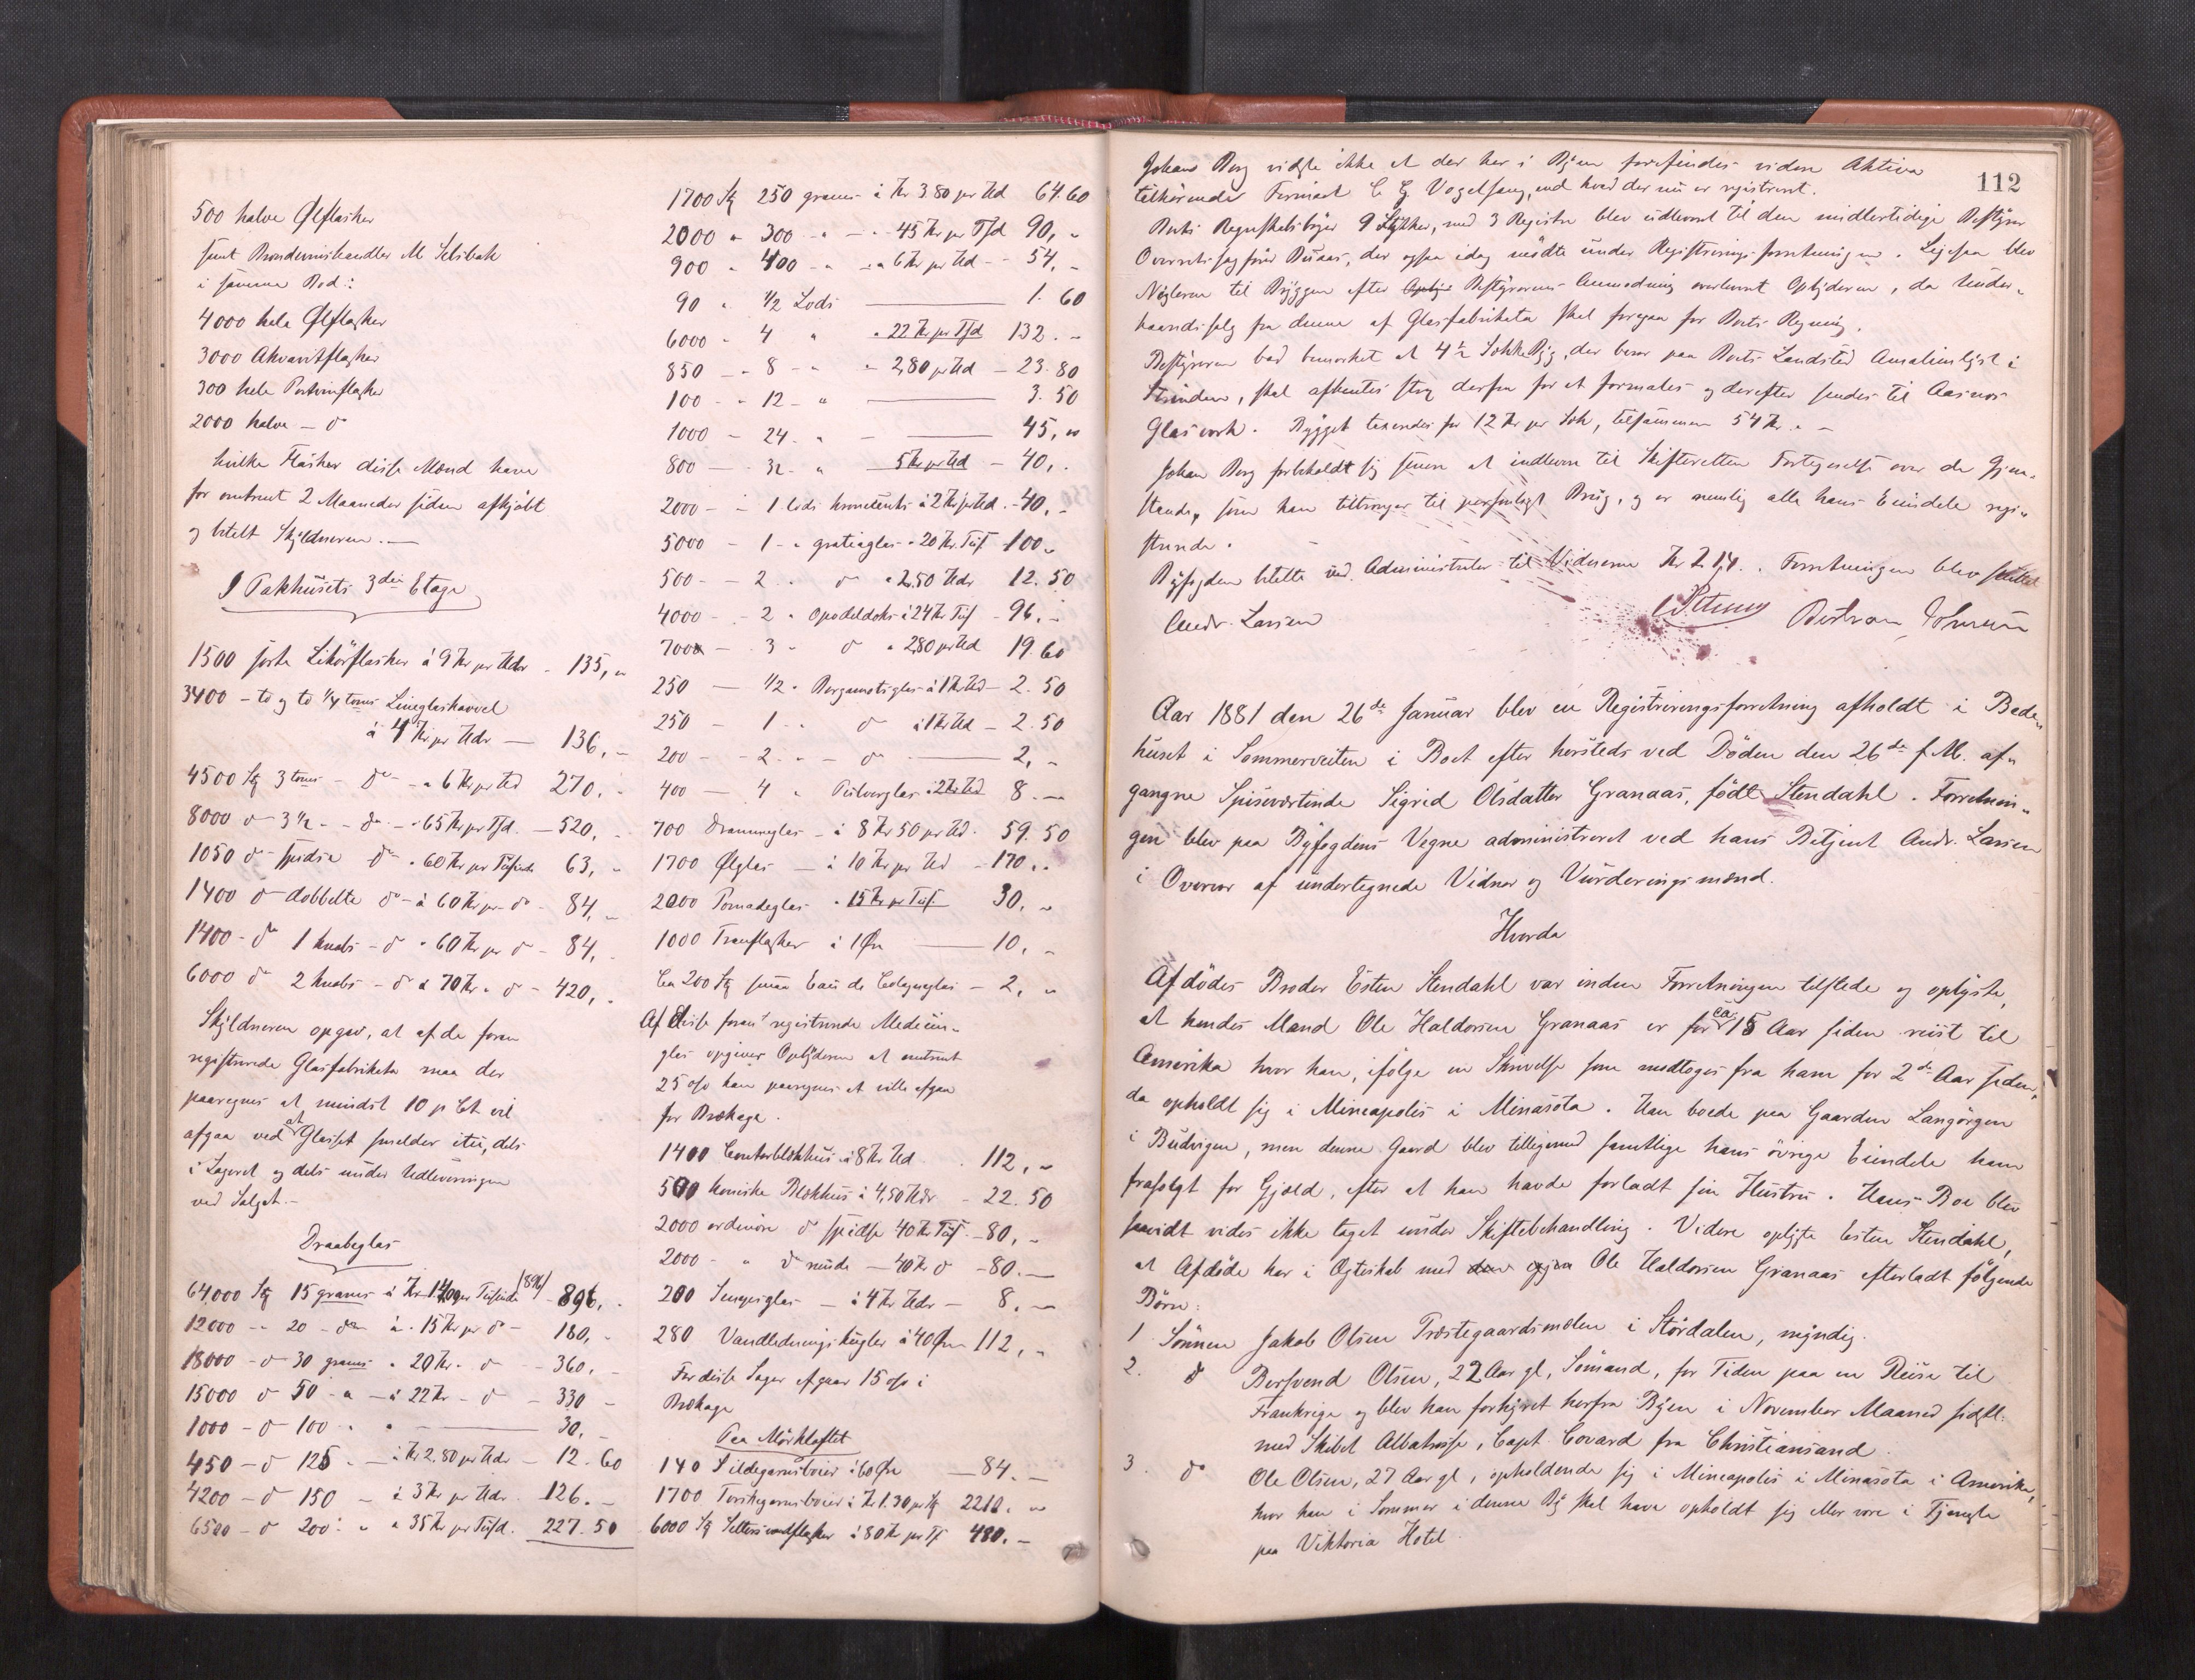 500 halve Ølflasker
samt Brændevinshandler M Selsbak
i samme Bod:
4000 hele Ølflasker
3000 Akvavitflasker
300 hele Portvinflasker
2000 halve - do
hvilke Flasker disse Mænd have
for omtrent 2 Maaneder siden afkjøbt
og betalt Skyldneren. —
I Pakhusets 3die Etage
1500 sorte Likørflasker à 9 Kr pr Hdr - 135, "
3400 - to og to 1/4 toms Lineglaskavvel
à 4 Kr pr Hdr — 136, -
4500 Stk 3 toms - do - " 6 Kr pr Hd 270. -
8000 do 3 1/2 - - do - " 65 Kr pr Tsd. - 520, -
1050 do - spidse do " 60 Kr pr Tusinde 63, -
1400 do dobbelte do - à 60 Kr pr do - 84, -
1400 - do 1 knabs - do " 60 Kr pr do - 84, -
6000 do 2 knabs - do à 70 Kr " do - 420, -
Skyldneren opgav, at af de foran
registrerede Glasfabrikata maa der
paaregnes at mindst 10 p Ct vil
afgaa ved at Glasset smelder itu, dels
i Lageret og dels under Udleveringen
ved Salget. -
Draabeglas
64,000 Stk 15 grams à Kr 14,00 pr Tusinde (896) - 896, -
12000 - " 20 - do à 15 Kr pr do - 180, -
18000 - do 30 grams " 20 Kr " do - 360, -
15000 do 50 - " - à 22 Kr - do - 330 -
1000 - do 100 " " ——— 30, -
450 - do 125 " - à Kr 2.80 pr Hdr - 12.60
4200 - do 150 - à 3 Kr pr Hdr. 126. -
6500 - do 200 " " à 35 Kr pr Tusd. 227.50
1700 Stk 250 grams à Kr 3.80 pr Hd 64.60
2000 " 300 - " - " 45 Kr pr Tsd 90, "
900 " 400 - " - " 6 Kr pr Hd - - 54, -
90 " 1/2 Lods ——— 1.60
6000 " 4 " " 22 Kr pr Tsd 132. -
850 - " 8 - " " 2,80 pr Hd - 23.80
100 - " 12 - " ——— 3.50
1000 - 24 - " - ——— 45, "
800 — 32 - " 5 Kr pr Hd - 40, .
2000 - - 1 Lods à 2 Kr pr Hd - 40, -
5000 - 1 - " gratiaglas " 20 Kr. Tus 100 "
500 - - 2 " do " 2,50 Hdr 12.50
4000 - - 2 " Opodeldoks à 24 Kr Tus - 96. -
700 - 3 - do " 2,80 pr Hd 19.60
250 — 1/2 " Bergamotglas à 1 Kr Hd - 2.50
250 - 1 - " do à 1 Kr Hd - 2.50
200 - - 2 " - do ——— 2, -
400 — 4 " Pulverglas à 2 Kr Hd 8. —
700 Dramneglas - à 8 Kr 50 pr Hd. 59.50
1700 Ølglas — à 10 Kr pr Hd - 170 "
2000 Pomadeglas " 15 Kr pr Tus 30, "
1000 Tranflasker à 1 Øre ——— 10, -
Ca 200 Stk smaa Eau de Cologneglas - 2, "
Af disse foran registrerede Medicin-
glas opgiver Opbyderen at omtrent
25 o/o kan paaregnes at ville afgaa
for Brækage.
1400 Contorblækhus à 8 Kr Hd 112, "
500 koniske Blækhus à 4,50 Hdr - 22.50
2000 ordinære do spidse 40 Kr Tus. - 80, -
2000 - " do runde - 40 Kr do - 80. —
200 Sennepsglas - à 4 Kr Hdr - 8. —
280 Vandlednings kugler à 40 Øre 112, -
For disse Sager afgaar 15 o/o i
Brækage
Paa Mørkloftet
140 Sildegarnsboier à 60 Øre — 84. —
1700 Torskegarnsboier à Kr 1.30 pr Stk 2210. "
6000 Stk Seltersvandflasker à 80 Kr pr Ts 480. -
112
Johans Berg vidste ikke at der her i Byen forefindes videre Aktiva
tilhørende Firmaet C G Vogelsang, end hvad der nu er registreret.
Boets Regnskabsbøger 9 Stykker, med 3 Registre blev udleveret til den midlertidige Bestyrer
Overrets sagfører Buaas, der ogsaa idag mødte under Registrerings forretningen. Ligesaa blev
Nøglerne til Bryggen efter Bestyrerens Anmodning overleveret Opbyderen, da Under-
haandssalg fra denne af Glasfabrikata skal foregaa for Boets Regning.
Bestyreren bad bemærket at 4 1/2 Sække Byg, der beror paa Boets Landsted Amalienlyst i
Strinden, skal afhentes strax derfra for at formales og derefter sendes til Aasnæs
Glasværk. Bygget taxeredes for 12 Kr pr Sæk, tilsammen 54 Kr " -
Johan Berg forbeholdt sig senere at indlevere til Skifteretten Fortegnelse over de Gjen-
stande, som han tiltrænger til personligt Brug, og er nemlig alle hans Eiendele regi-
strerede.
Byfogden betalte ved Administrator til Vidnerne Kr 2.14. Forretningen blev sluttet
Andr. Larsen
Aar 1881 den 26de Januar blev en Registreringsforretning afholdt i Bede-
huset i Sommerveiten i Boet efter hersteds ved Døden den 26de f.M. af-
gangne Spiseværtinde Sigrid Olsdatter Granaas, født Stendahl. Forretnin-
gen blev paa Byfogdens Vegne administreret ved hans Betjent Andr. Larsen
i Overvær af undertegnede Vidner og Vurderingsmænd.
Hvorda
Afdødes Broder Esten Stendahl var inden Forretningen tilstede og oplyste,
at hendes Mand Ole Haldorsen Granaas er for ca. 15 Aar siden reist til
Amerika hvor han, ifølge en Skrivelse som modtoges fra ham for 2de Aar siden,
da opholdt sig i Mineapolis i Minasota. Han boede paa Gaarden Langørgen
i Budvigen, men denne Gaard blev tilligemed samtlige hans øvrige Eiendele ham
frasolgt for Gjæld, efter at han havde forladt sin Hustru. Hans Boe blev
saavidt vides ikke taget under Skiftebehandling. Videre oplyste Esten Stendahl,
at Afdøde har i Ægteskab med Ole Haldorsen Granaas efterladt følgende
Børn:
1. Sønnen Jakob Olsen Præstegaardsmølen i Størdalen, myndig.
2. do Bersvend Olsen, 22 Aar gl, Sømand, for Tiden paa en Reise til
Frankrige og blev han forhyret herfra Byen i November Maaned sidstl.
med Skibet Albatrosse, Capt. Covard fra Christiansand.
3. do Ole Olsen, 27 Aar gl, opholdende sig i Mineapolis i Minasota i Amerika,
hvor han i Sommer i denne By skal have opholdt sig eller være i Tjeneste
paa Viktoria Hotel.